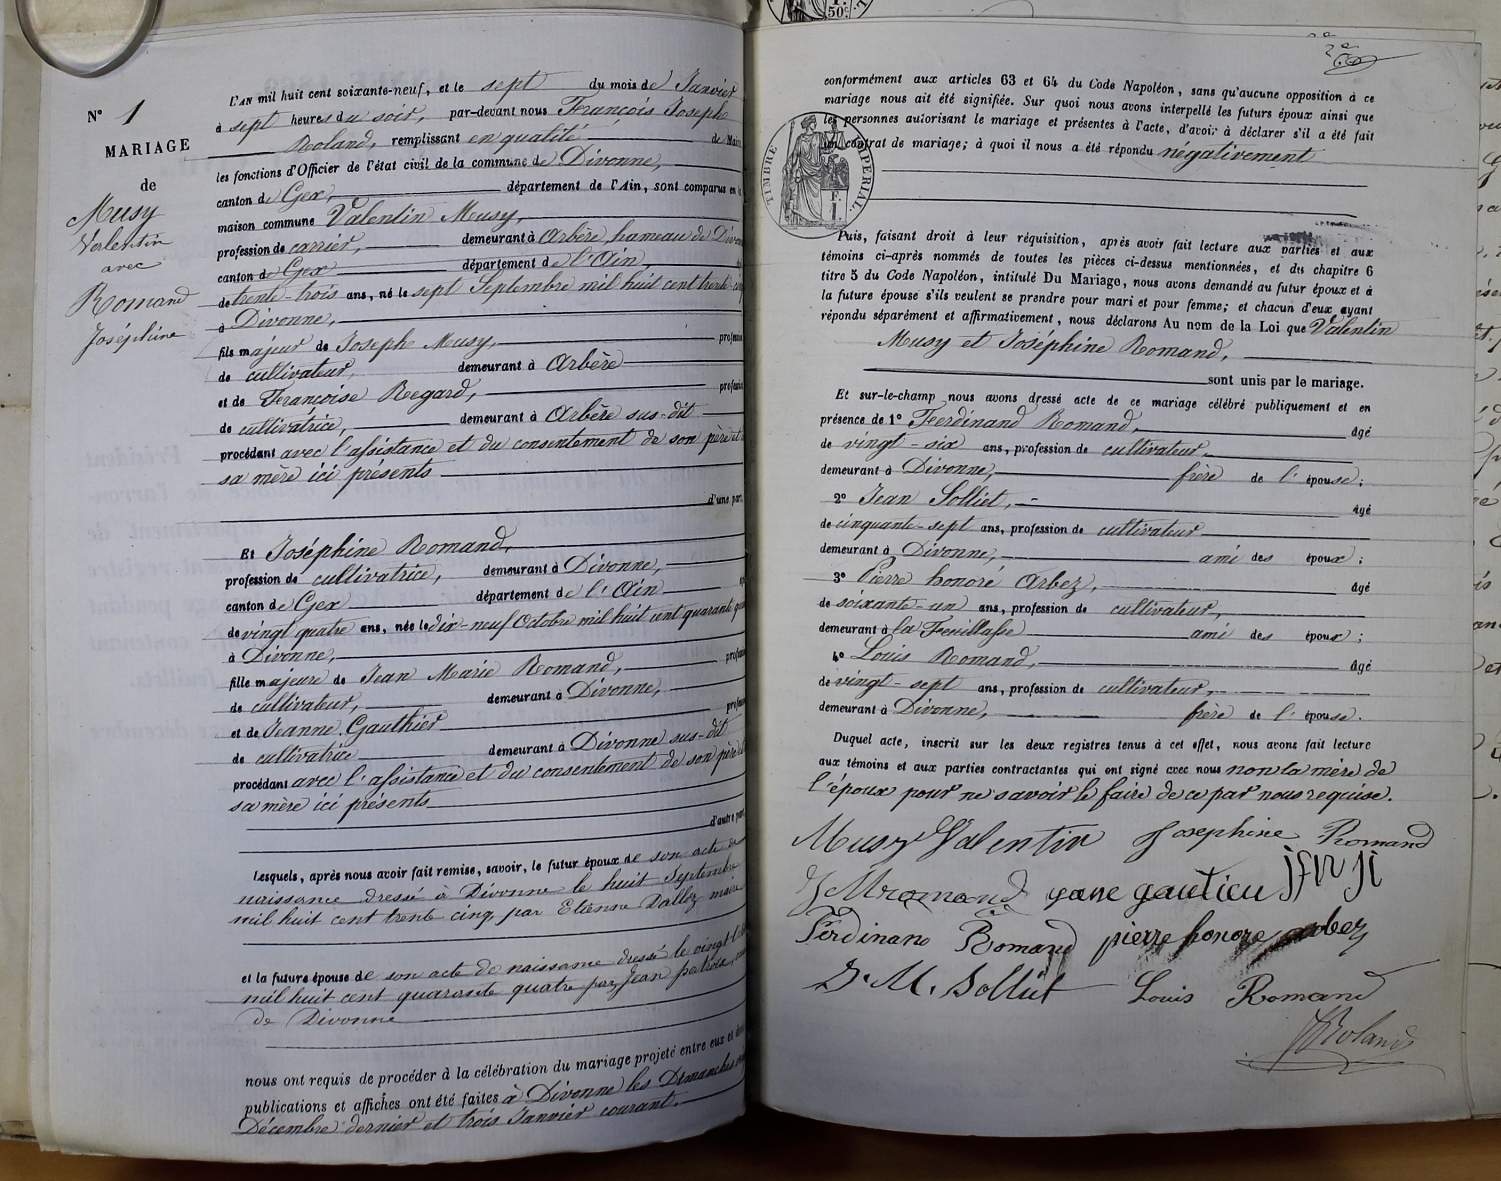 N° 1
MARIAGE
de
Musy
Valentin
avec
Romand
Joséphine
L'AN mil huit cent soixante-neuf, et le sept du mois de Janvier
à sept heures du soir, par-devant nous François Joseph
Roland, remplissant en qualité de Maire
les fonctions d'Officier de l'état civil de la commune de Divonne,
canton de Gex, département de l'Ain, sont comparus en la
maison commune Valentin Musy,
profession de carrier, demeurant à Arbère hameau de
canton de Gex département de l'Ain
de trente-trois ans, né le sept Septembre mil huit cent trente-
à Divonne,
fils majeur de Joseph Musy,
de cultivateur, demeurant à Arbère
et de Françoise Regard,
de cultivatrice, demeurant à Arbère sus-dit
procédant avec l'assistance et du consentement de son père et
sa mère ici présents
d'une part
Et Joséphine Romand,
profession de cultivatrice, demeurant à Divonne,
canton de Gex département de l'Ain
de vingt quatre ans, née le dix-neuf Octobre mil huit cent quarante
à Divonne,
fille majeure de Jean Marie Romand,
de cultivateur, demeurant à Divonne,
et de Jeanne Gauthier
de cultivatrice demeurant à Divonne sus-dit
procédant avec l'assistance et du consentement de son père et
sa mère ici présents
d'autre part
Lesquels, après nous avoir fait remise, savoir, le futur époux de son acte de
naissance dressé à Divonne le huit Septembre
mil huit cent trente cinq par Etienne Dalloz maire
et la future épouse de son acte de naissance dressé le vingt
mil huit cent quarante quatre par Jean
de Divonne
nous ont requis de procéder à la célébration du mariage projeté entre eux et
publications et affiches ont été faites à Divonne les Dimanches
Décembre dernier et trois Janvier courant.
2e
conformément aux articles 63 et 64 du Code Napoléon, sans qu'aucune opposition à ce
mariage nous ait été signifiée. Sur quoi nous avons interpellé les futurs époux ainsi que
les personnes autorisant le mariage et présentes à l'acte, d'avoir à déclarer s'il a été fait
un contrat de mariage; à quoi il nous a été répondu négativement
TIMBRE IMPERIAL
1 F.
Puis, faisant droit à leur réquisition, après avoir fait lecture aux parties et aux
témoins ci-après nommés de toutes les pièces ci-dessus mentionnées, et du chapitre 6
titre 5 du Code Napoléon, intitulé Du Mariage, nous avons demandé au futur époux et à
la future épouse s'ils veulent se prendre pour mari et pour femme; et chacun d'eux ayant
répondu séparément et affirmativement, nous déclarons Au nom de la Loi que Valentin
Musy et Joséphine Romand,
sont unis par le mariage.
Et sur-le-champ nous avons dressé acte de ce mariage célébré publiquement et en
présence de 1° Ferdinand Romand, âgé
de vingt-six ans, profession de cultivateur
demeurant à Divonne, frère de l'épouse;
2° Jean Solliet, âgé
de cinquante-sept ans, profession de cultivateur
demeurant à Divonne, ami des époux;
3° Pierre honoré Arbez, âgé
de soixante-un ans, profession de cultivateur,
demeurant à la Feuillasse ami des époux;
4° Louis Romand, âgé
de vingt-sept ans, profession de cultivateur,
demeurant à Divonne, frère de l'épouse.
Duquel acte, inscrit sur les deux registres tenus à cet effet, nous avons fait lecture
aux témoins et aux parties contractantes qui ont signé avec nous non la mère de
l'époux pour ne savoir le faire de ce par nous requise.
Musy Valentin Josephine Romand
J M romand
Ferdinand Romand pierre honore arbez
J. M. Solliet Louis Romand
Roland